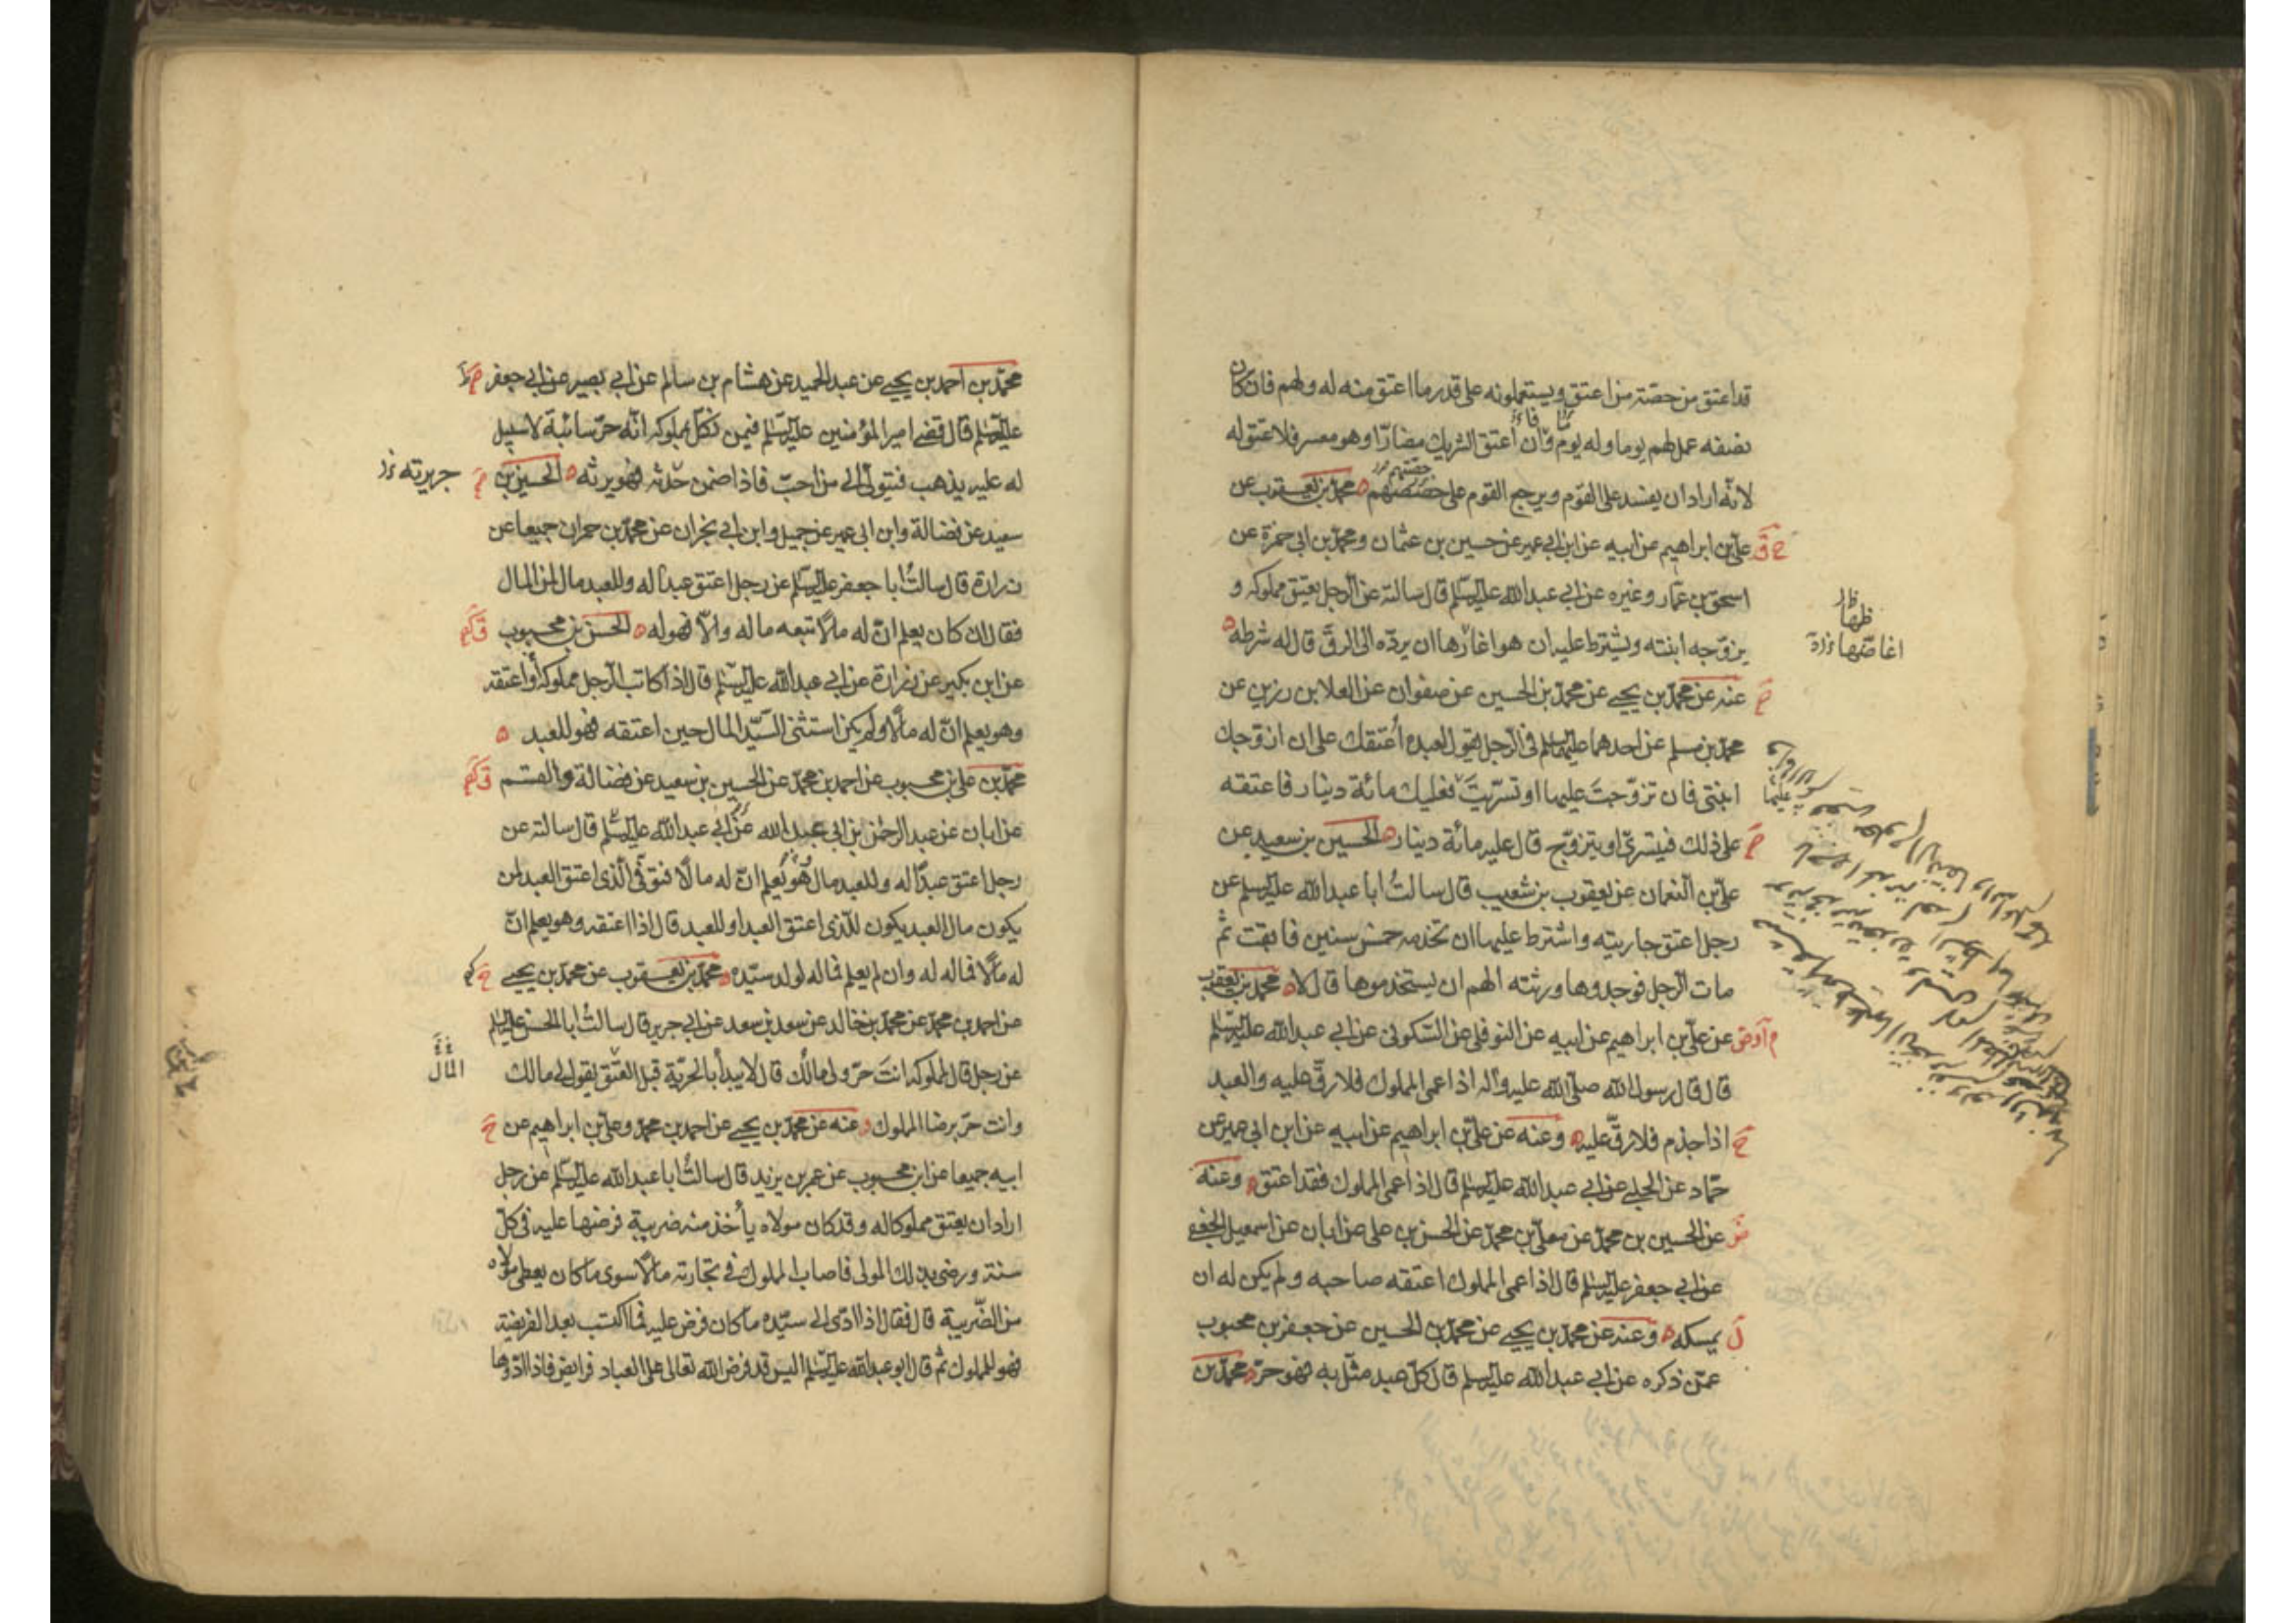 قد اعتق من حصته من اعتق ويستعملونه على قدر ما اعتق منه له ولهم فان كان
نصفه عمل لهم يوما وله يوم وان أعتق الشريك مضارّا وهو معسر فلا عتق له
لانّه اراد ان يفسد على القوم ويرجع القوم على حصصهم محمّد بن يعقوب عن
علىّ بن ابراهيم عن ابيه عن ابن ابي عمير عن حسين بن عثمان ومحمّد بن ابي حمزة عن
اسحق بن عمّار وغيره عن ابي عبد الله عليه السّلم قال سالته عن الرجل يعتق مملوكه و
يزوّجه ابنته ويشترط عليه ان هو اغارها ان يردّه الى الرقّ قال له شرطه
ظهار
اغاضها
عنه عن محمّد بن يحيى عن محمّد بن الحسين عن صفوان عن العلا بن رزين عن
محمّد بن مسلم عن احدهما عليهما السلم فى الرّجل يقول لعبده أعتقك على ان ازوجك
ابنتى فان تزوّجت عليها او تسرّيت فعليك مائة دينار فاعتقه
على ذلك فيتسرّى او يتزوّج قال عليه مائة دينار الحسين بن سعيد عن
علىّ بن النعمان عن يعقوب بن شعيب قال سالتُ ابا عبد الله عليه السلم عن
رجل اعتق جاريته واشترط عليها ان تخدمه خمس سنين فابقت ثم
مات الرّجل فوجدوها ورثته الهم ان يستخدموها قال لا محمد بن يعقوب
عن علىّ بن ابراهيم عن ابيه عن النوفلى عن السّكونى عن ابي عبد الله عليه السّلم
قال قال رسول الله صلّى الله عليه وآله اذا عمى المملوك فلا رقّ عليه والعبد
اذا جذم فلا رقّ عليه وعنه عن علىّ بن ابراهيم عن ابيه عن ابن ابي عمير عن
حمّاد عن الحلبى عن ابي عبد الله عليه السّلم قال اذا عمى المملوك فقد اعتق وعنه
عن الحسين بن محمّد عن معلّى بن محمّد عن الحسن بن على عن ابان عن اسمعيل الجعفى
عن ابي جعفر عليه السّلم قال اذا عمى المملوك اعتقه صاحبه ولم يكن له ان
يمسكه وعنه عن محمّد بن يحيى عن محمّد بن الحسين عن جعفر بن محبوب
عمّن ذكره عن ابي عبد الله عليه السلم قال كلّ عبد مثّل به فهو حرّ محمّد بن
محمّد بن احمد بن يحيى عن عبد الحميد عن هشام بن سالم عن ابي بصير عن ابي جعفر
عليه السّلم قال قضى امير المؤمنين عليه السّلم فيمن نكّل بمملوكه انّه حرّ سائبة لا سبيل
له عليه يذهب فيتولّى الى من احبّ فاذا ضمن حدثه فهو يرثه الحسين بن
جريرته
سعيد عن فضالة وابن ابي عمير عن جميل وابن ابي نجران عن محمّد بن حمران جميعا عن
زرارة قال سالتُ ابا جعفر عليه السّلم عن رجل اعتق عبدًا له وللعبد مال لمن المال
فقال ان كان يعلم انّ له مالًا تبعه ماله والّا فهو له الحسن بن محبوب
عن ابن بكير عن زرارة عن ابي عبد الله عليه السّلم قال اذا كاتب الرّجل مملوكه أو اعتقه
وهو يعلم انّ له مالًا ولم يكن استثنى السّيّد المال حين اعتقه فهو للعبد
محمّد بن على بن محبوب عن احمد بن محمّد عن الحسين بن سعيد عن فضالة والقسم
عن ابان عن عبد الرحمن بن ابي عبد الله عن ابي عبد الله عليه السّلم قال سالته عن
رجل اعتق عبدًا له وللعبد مال هو يعلم انّ له مالًا فتوفّى الّذى اعتق العبد لمن
يكون مال العبد يكون للّذى اعتق العبد او للعبد قال اذا اعتقه وهو يعلم انّ
له مالًا فماله له وان لم يعلم فماله لولد سيّده محمّد بن يعقوب عن محمّد بن يحيى
عن احمد بن محمّد عن محمّد بن خالد عن سعد بن سعد عن ابي جرير قال سالتُ ابا الحسن عليه السّلم
عن رجل قال لمملوكه انت حرّ ولى مالك قال لا يبدأ بالحرّيّة قبل العتق يقول لى مالك
المال
وانت حرّ برضا المملوك وعنه عن محمّد بن يحيى عن احمد بن محمّد وعلىّ بن ابراهيم عن
ابيه جميعا عن ابن محبوب عن عمر بن يزيد قال سالتُ ابا عبد الله عليه السّلم عن رجل
اراد ان يعتق مملوكا له وقد كان مولاه يأخذ منه ضريبة فرضها عليه فى كلّ
سنة ورضى بذلك المولى فاصاب المملوك فى تجارته مالًا سوى ما كان يعطى مولاه
من الضّريبة قال فقال اذا ادّى الى سيّده ما كان فرض عليه فما اكتسب بعد الفريضة
فهو للمملوك ثمّ قال ابو عبد الله عليه السّلم اليس قد فرض الله تعالى على العباد فرايض فاذا ادّوها